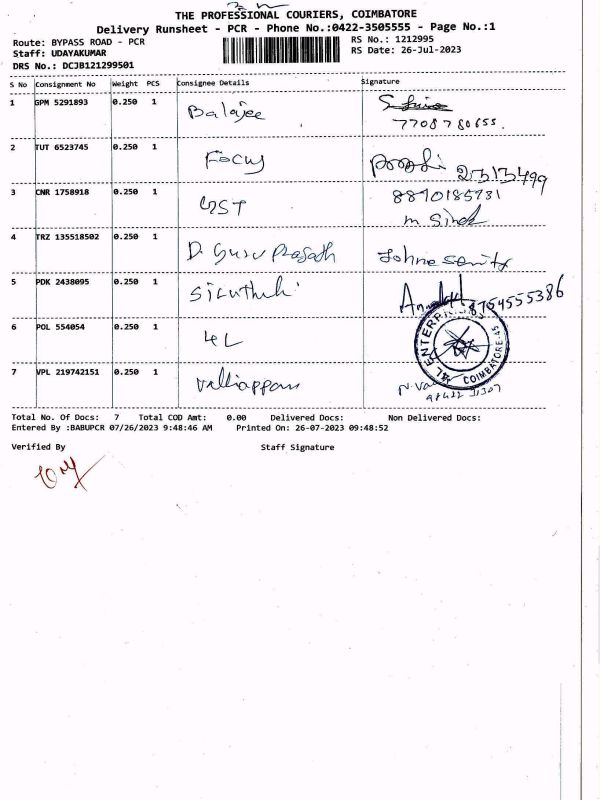 THE PROFESSIONAL COURIERS, COIMBATORE
Delivery Runsheet - PCR - Phone No.:0422-3505555 - Page No.:1
Route: BYPASS ROAD - PCR
RS No.: 1212995
Staff: UDAYAKUMAR
RS Date: 26-Jul-2023
DRS No.: DCJB121299501
S No Consignment No Weight PCS Consignee Details Signature
1 GPM 5291893 0.250 1 Balajee
7708780655.
2 TUT 6523745 0.250 1 Focus
3 CNR 1758918 0.250 1 GST 8870185731
4 TRZ 135518502 0.250 1 D. Guru Prasath
5 PDK 2438095 0.250 1 Siruthuli 8754555386
6 POL 554054 0.250 1 4L
4L ENTERPRISES COIMBATORE-45
7 VPL 219742151 0.250 1 Valliappan
Total No. Of Docs: 7 Total COD Amt: 0.00 Delivered Docs: Non Delivered Docs:
Entered By :BABUPCR 07/26/2023 9:48:46 AM Printed On: 26-07-2023 09:48:52
Verified By Staff Signature